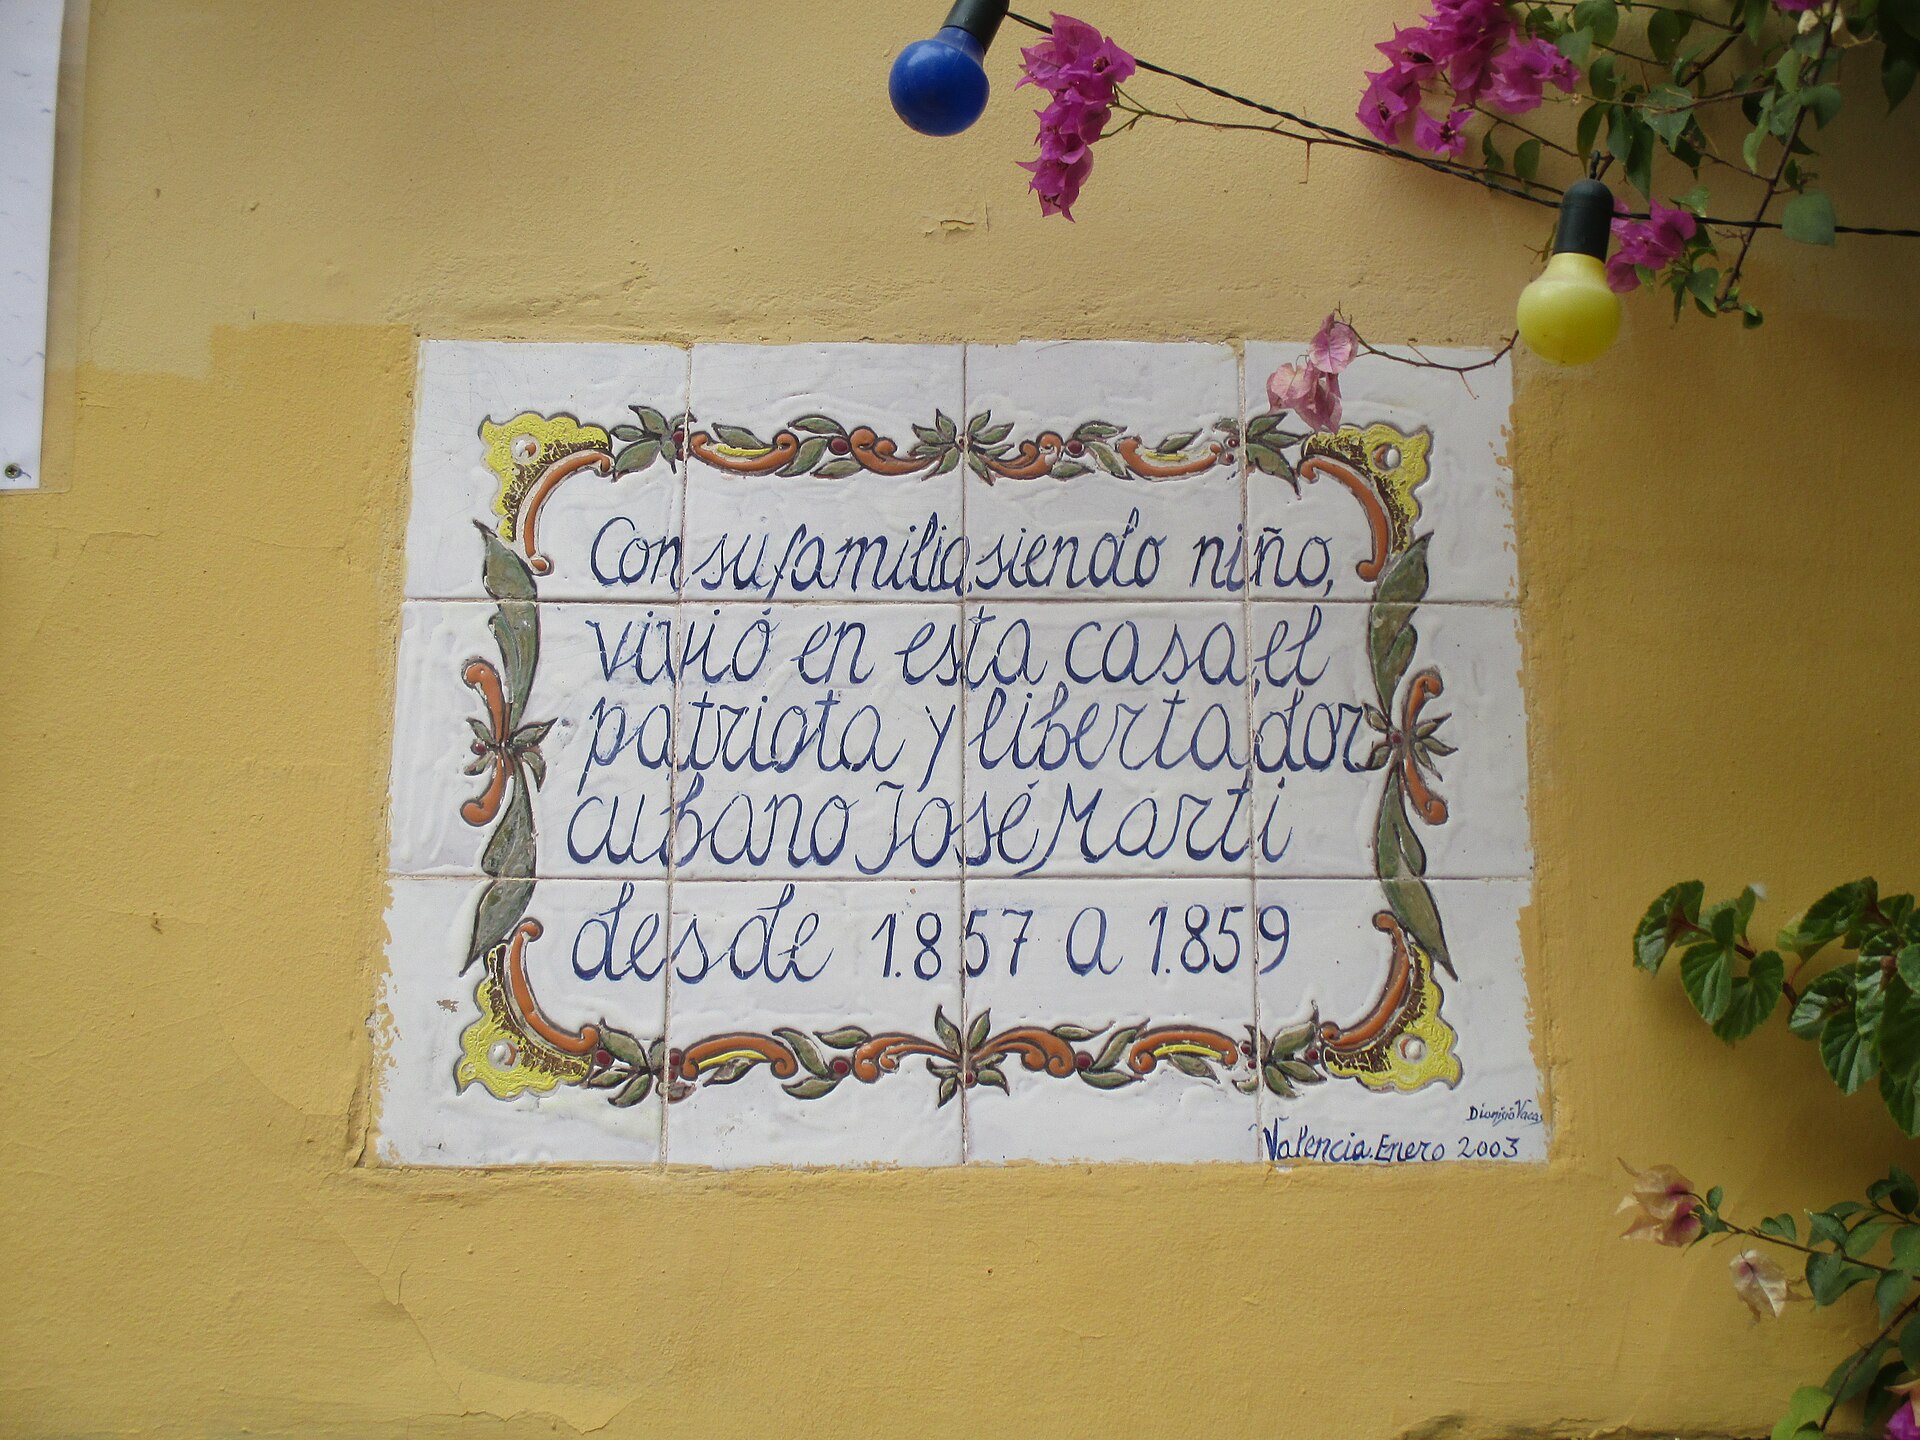 Con su familia, siendo niño,
vivió en esta casa, el
patriota y libertador
cubano José Marti
desde 1.857 a 1.859
Dionisio Vacas
Valencia. Enero 2003